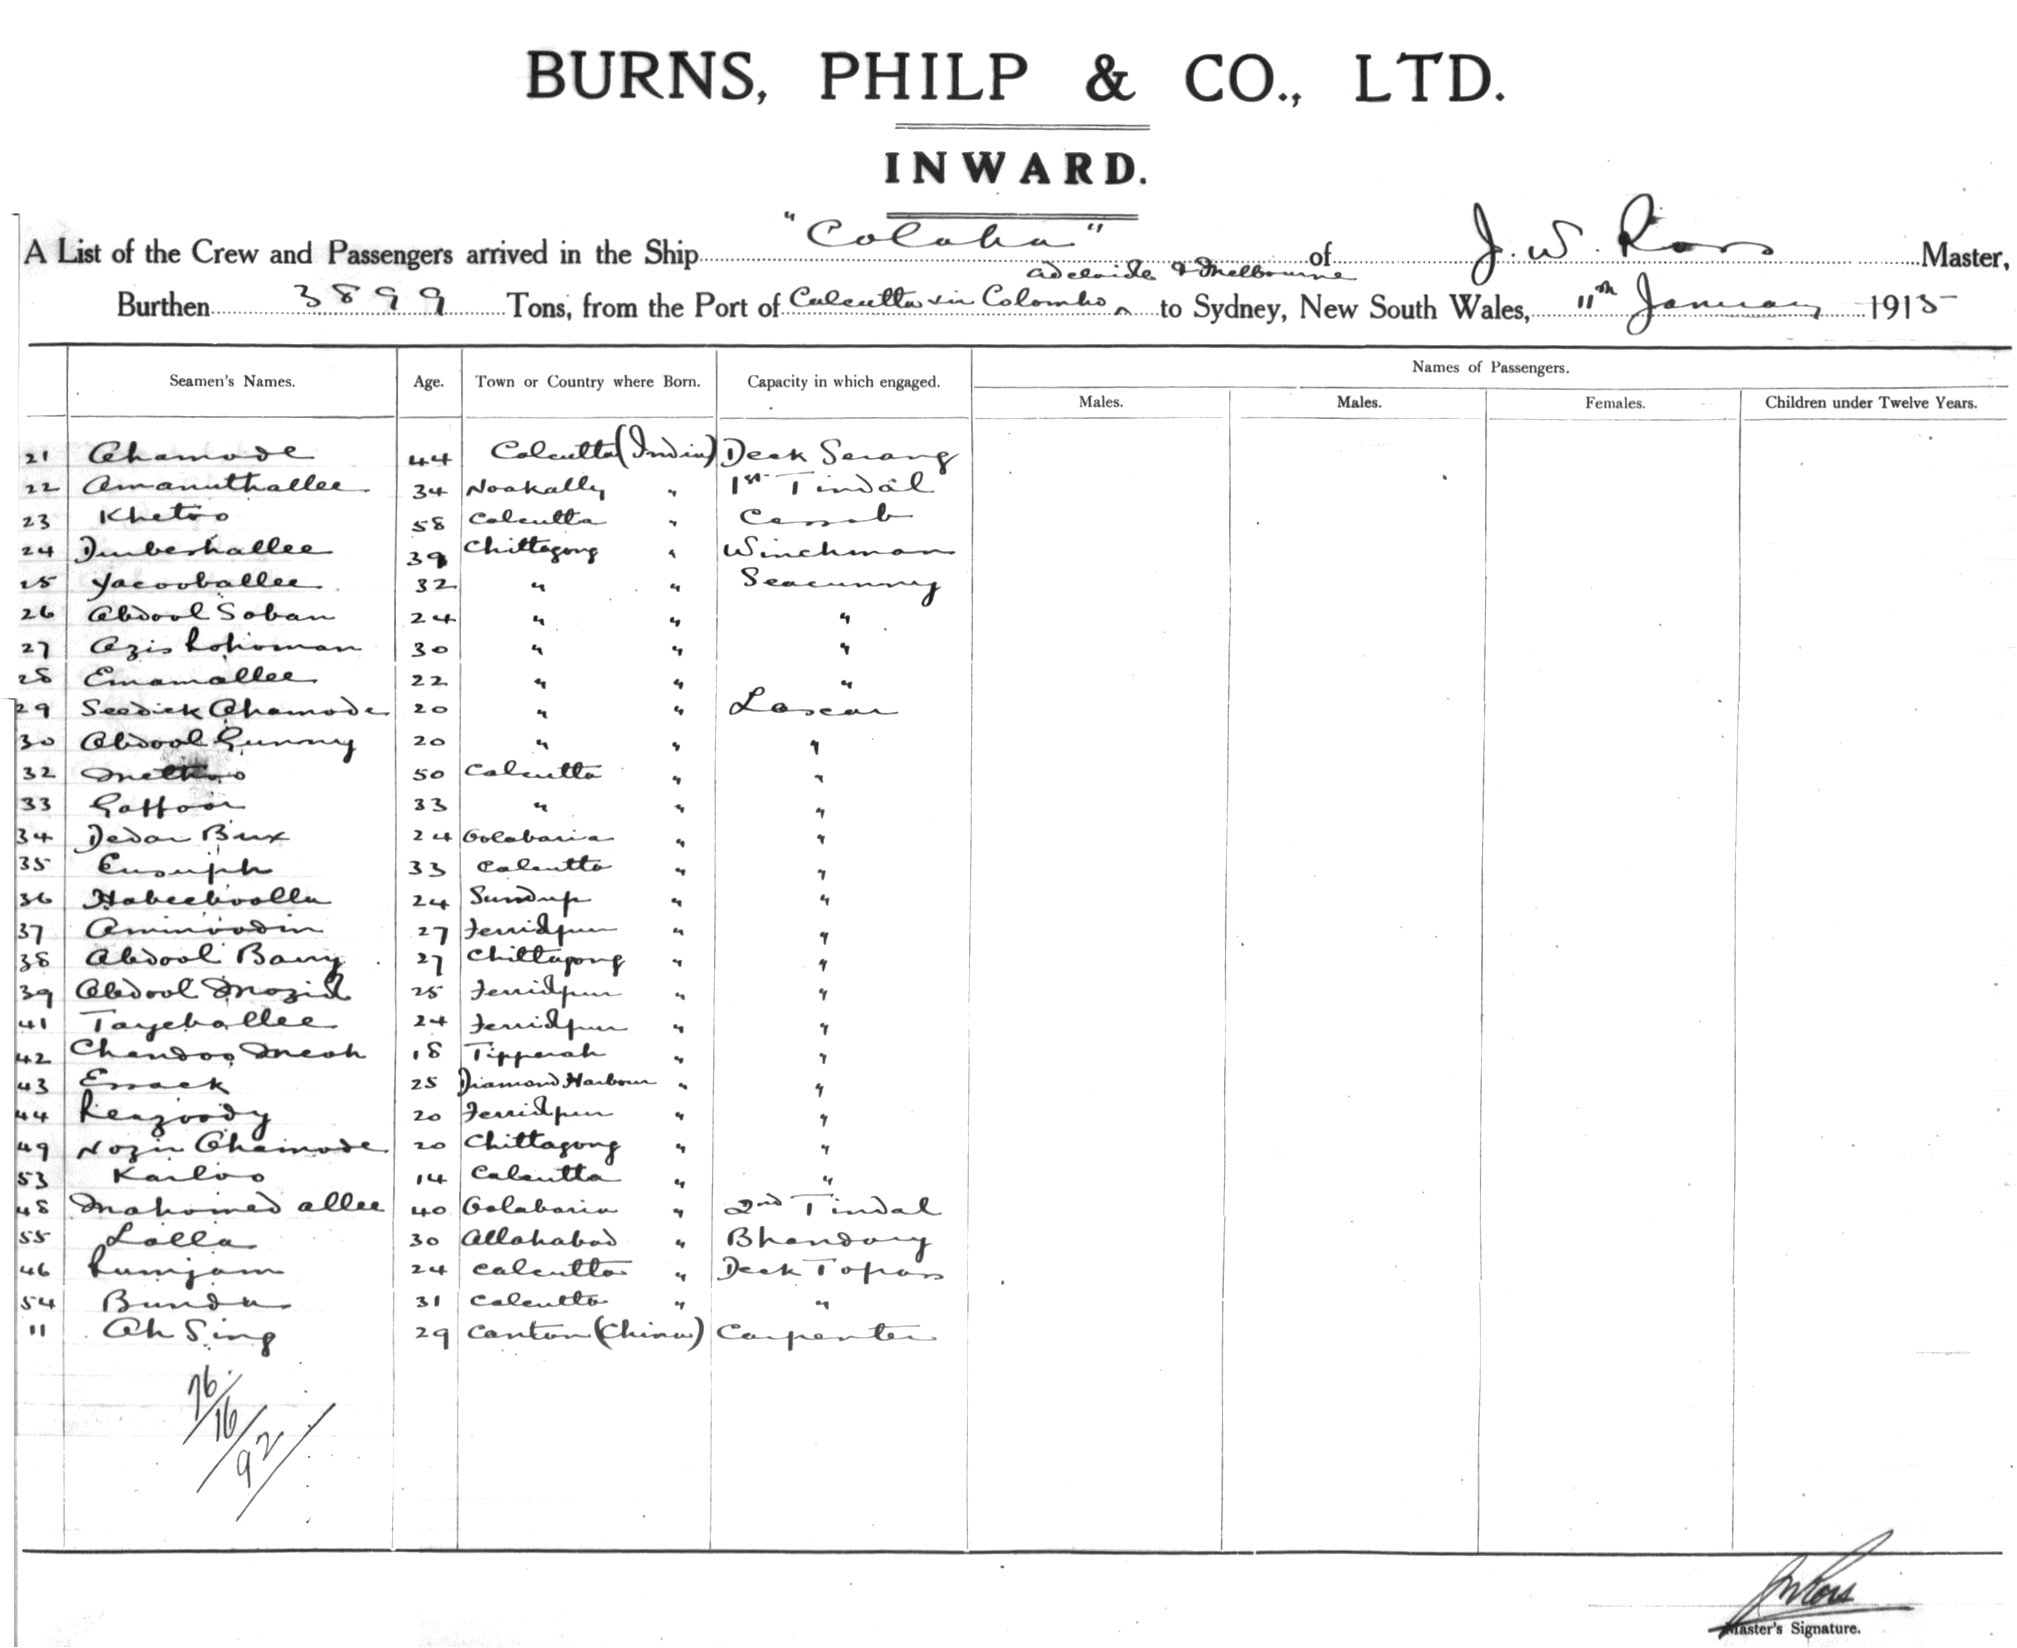 BURNS, PHILP & CO., LTD.
INWARD.
A List of the Crew and Passengers arrived in the Ship "Colaba" of J. W. Ross Master,
Adelaide & Melbourne
Burthen 3899 Tons, from the Port of Calcutta via Colombo ^ to Sydney, New South Wales, 11th January 1915
Names of Passengers.
Seamen's Names. Age. Town or Country where Born. Capacity in which engaged.
Males. Males. Females. Children under Twelve Years.
21 Ahamode 44 Calcutta (India) Deck Serang
22 Amanuthallee 34 Noakally " 1st Tindal
23 Khetoo 58 Calcutta " Cassab
24 39 Chittagong " Winchman
25 Yacooballee 32 " " Seacunny
26 Abdool Soban 24 " " "
27 Azis Rohoman 30 " " "
28 Emamallee 22 " " "
29 Seedick Ahamode 20 " " Lascar
30 Abdool Gunny 20 " " "
32 Methoo 50 Calcutta " "
33 Gaffoor 33 " " "
34 Dedar Bux 24 Golabaria " "
35 Eusuph 33 Calcutta " "
36 Habeeboolla 24 Sundup " "
37 Aminoodin 27 Ferridpur " "
38 Abdool Barry 27 Chittagong " "
39 Abdool Mozid 25 Ferridpur " "
41 Tayeballee 24 Ferridpur " "
42 Chandoo Meah 18 Tipperah " "
43 Essack 25 Diamond Harbour " "
44 Reazoody 20 Ferridpur " "
49 Nozir Ahamode 20 Chittagong " "
53 Karloo 14 Calcutta " "
48 Mahomed allee 40 Golabaria " 2nd Tindal
55 Lalla 30 Allahabad " Bhandary
46 Rumjam 24 Calcutta " Deck Topass
54 Bundu 31 Calcutta " "
11 Ah Sing 29 Canton (China) Carpenter
76/
16/
92/
J W Ross
Master's Signature.